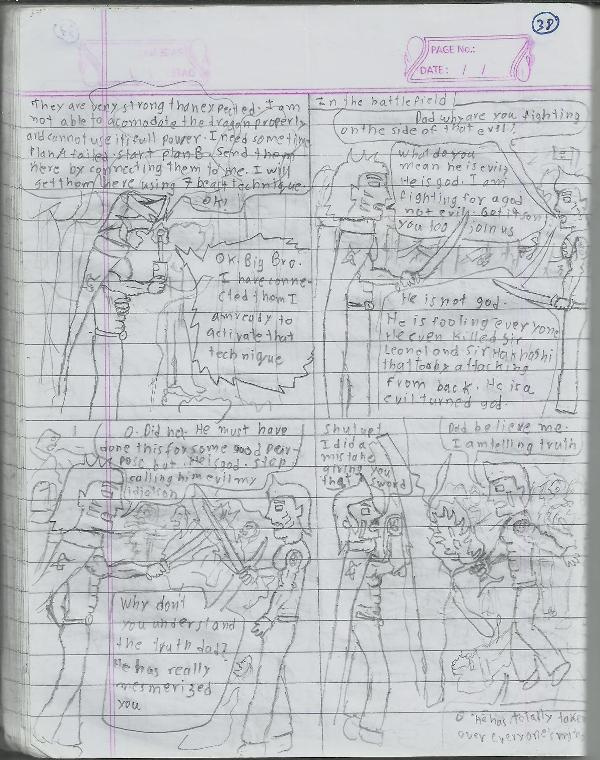 38
PAGE No.:
DATE: / /
They are very strong than expected. I am
not able to acomodate the dragon properly
and cannot use it's full power. I need some time
Plan A failed. start plan B. Send them
here by connecting them to me. I will
get them here using 7 beast technique
OK!
OK. Big Bro.
I have conne-
cted them I
am ready to
activate that
technique
In the battlefield!
Dad why are you fighting
on the side of that evil?
What do you
mean he is evil?
He is god. I am
fighting for a god
not evil. Got it son
you too join us
He is not god.
He is fooling everyone
He even killed Sir
Leonel and Sir
that too by attacking
from back. He is a
evil turned god.
O. Did he. He must have
done this for some good
pose but. He is god. stop
calling him evil my
idiot son
Why don't
you understand
the truth dad?
He has really
mesmerized
you
Shut up!
I did a
mistake
giving you
that sword
Dad believe me.
I am telling truth
O "He has totally taken
over everyone's